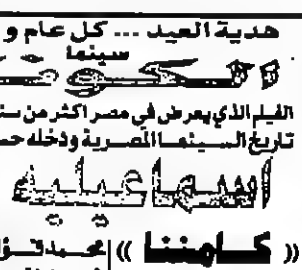 هدية العيد ... كل عام و
سينما
الفيلم الذي يعرض في مصر اكثر من سن
تاريخ السينما المصرية ودخله حم
اسماعيلية
(( كامننا )) محمد فؤا